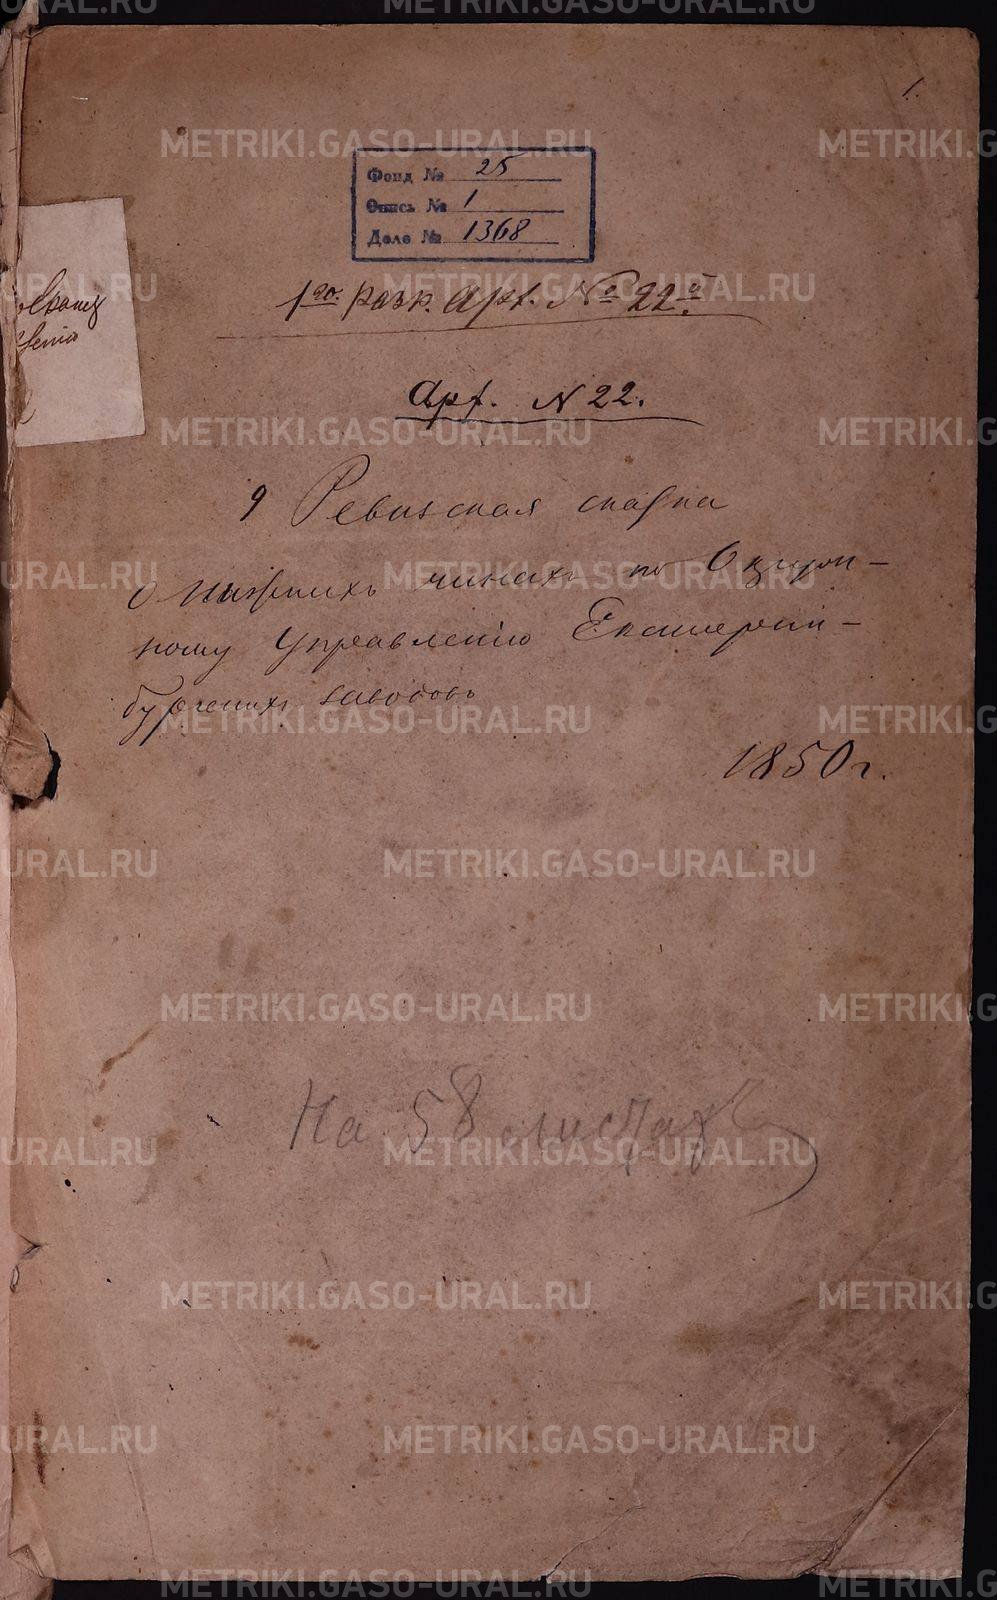 1.
Фонд № 25
Опись № 1
Дело № 1368
1го. разр. Арх. № 22й
Арх. N 22.
9 Ревизская сказка
о нижнихъ чинахъ по Окруж-
ному Управленію Екатерин-
бургскихъ заводовъ
1850 г.
На 58 листах
METRIKI.GASO-URAL.RU